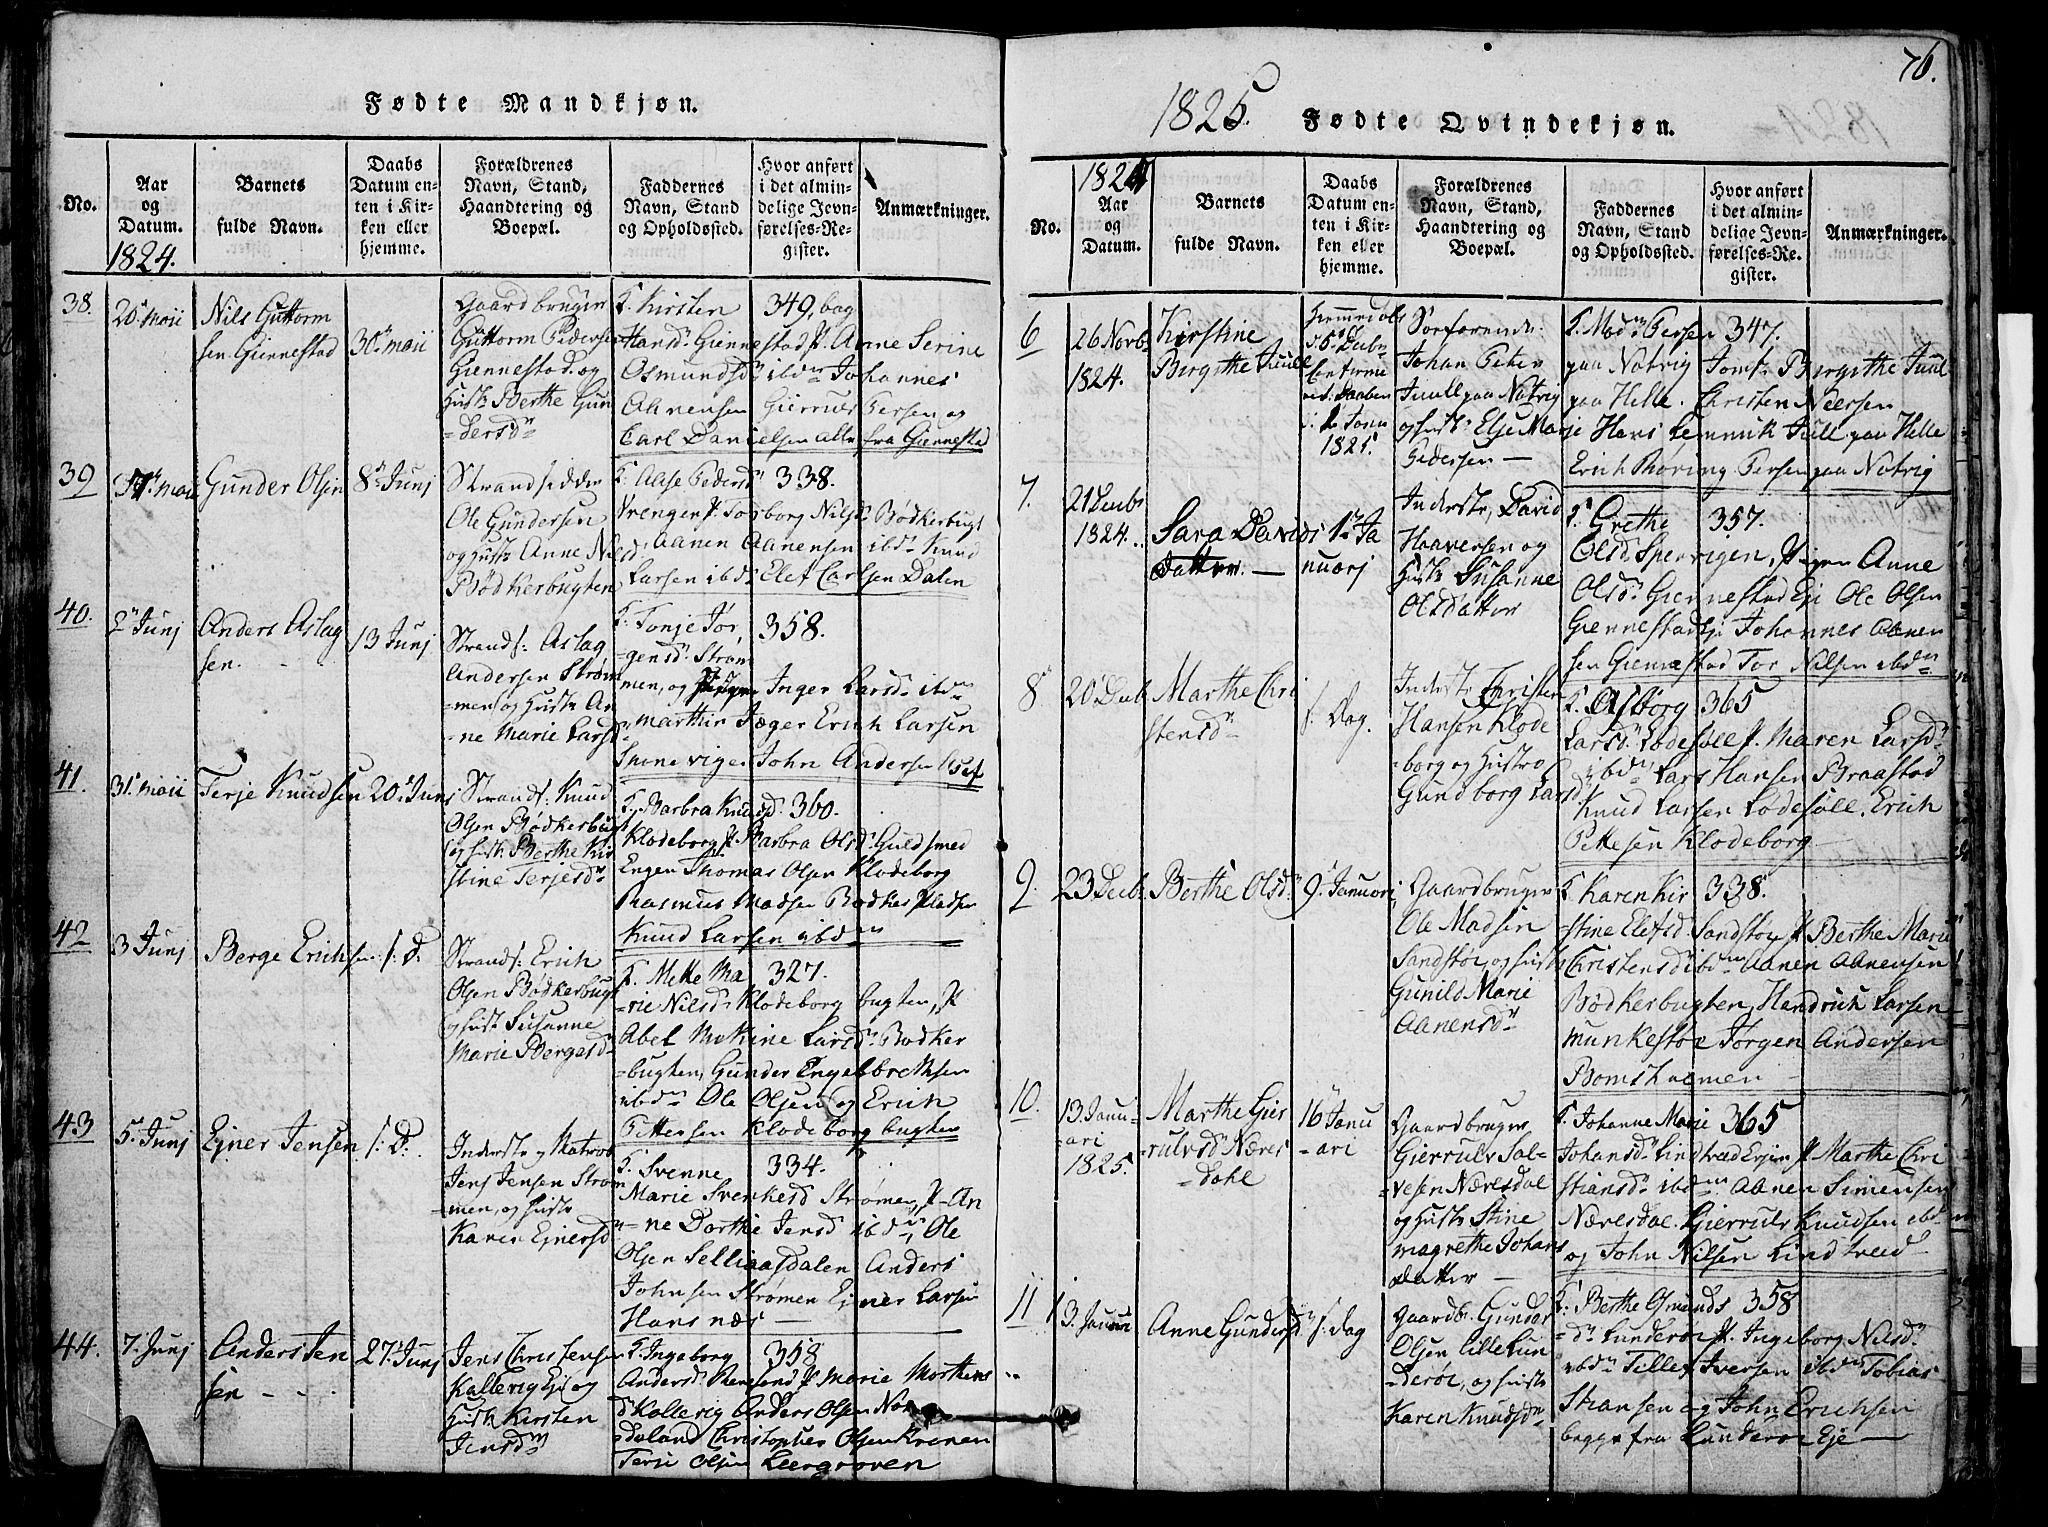 Fødte Mandkjøn.
No.
Aar og Datum.
1824.
Barnets fulde Navn.
Daabs Datum enten i Kirken eller hjemme.
Forældrenes Navn, Stand, Haandtering og Boepæl.
Faddernes Navn, Stand og Opholdssted.
Hvor anført i det almindelige Jevnførelses-Register.
Anmærkninger.
38.
20 maii
Nils Guttorm
sen Giennestad
30 maii
Gaardbruger
Guttorm Pedersen
Giennestad og
Hustr Berthe Gun
dersd
F. Kirsten 349, bag
Hansd Giennestad P. Anne Serine
Osmundsd ibdn Johannes
Aanensen Gierruls Persen og
Carl Danielsen alle fra Giennestad
39
maii
Gunder Olsen
8 Junj
Strandsidder
Ole Gundersen
og Hustr Anne Nilsd
Bødkerbugten
F. Aase Pedersd 338.
Vrengen P. Torborg Nilsd Bødkerbugt
Aanen Aanensen ibdn Knud
Larsen ibd Elef Carlsen Dalen
40.
2 Junj
Anders Aslag
sen.
13 Junj
Strands: Aslag
Andersen Strøm
men og Hustr An
ne Marie Larsd
F. Tonje Jør 358.
gensd Strøm
men, og Inger Larsd ibdn
Jæger Erich Larsen
John Andersen
41.
31 maii
Terje Knudsen
20 Junj
Strands: Knud
Olsen Bødkerbugt
og Hustr Berthe Kir
stine Terjesdr
F. Barbra Knudsd 360.
Klodeborg P. Barbra Olsd Guldsmed
Engen Thomas Olsen Klodeborg
Rasmus Madsen Bødker Pladsen
Knud Larsen ibdn
42
3 Junj
Berge Erichsen
s: D.
Strands: Erich
Olsen Bødkerbugt
og Hustr Susanne
Marie Bergesd
F. Mette Ma 327.
rie Nilsd Klodeborg bugten, P.
Abel Larsd Bødker
bugten, Gunder Engelbrethsen
ibdn Ole Olsen og Erich
Pettersen Klodeborg bugten
43
5. Junj
Ejner Jensen
s: D.
Inderste og Matros
Jens Jensen Strøm
men, og Hustr
Karen Ejnersd
F. Svenne 334.
Marie Svenkesd Strømen, P. An
ne Dorthe Jensd ibdn, Ole
Olsen Selliaasdalen Anders
Johnsen Strømen Ejner Larsen
Hans næs
44.
7. Junj
Anders Jen
sen
27 Junj
Jens Christensen
Kallevig Eje og
Hustr Kirsten
Jensd
F. Ingeborg 358
Andersd P. Marie Mortens
d Kallevig Anders Olsen Nor
daland Christopher Olsen
Terje Olsen Leergroven
76.
1825.
Fødte Qvindekjøn.
No.
1824
Aar og Datum.
Barnets fulde Navn.
Daabs Datum enten i Kirken eller hjemme.
Forældrenes Navn, Stand, Haandtering og Boepæl.
Faddernes Navn, Stand og Opholdssted.
Hvor anført i det almindelige Jevnførelses-Register.
Anmærkninger.
6
26 Novb
1824.
Kirstine
Birgithe Juull
Hjemmedøbt
1825
Johan Peter
Juull paa Natvig
og Hustr Else Marie
Pedersen
F. Mad. Persen 347.
paa Natvig Jomf: Birgithe Juul
paa Helle. Christen Neersen
Hans Jull paa Helle
Erich Thøring Persen paa Natvig
7.
21 Decb
1824.
Sara Davids
Datter.
1 Ja
nuarj
Inderste, David
Haaversen og
Hustr Susanne
Olsdatter
F. Grethe 357.
Olsd Spervigen, Pigen Anne
Olsd Giennestad Eje Ole Olsen
Giennestad Eje Johannes Aanen
sen Giennestad Tor Nilsen ibdn
8
20 Decb
Marthe Chri
stensd
s. Dag.
Inderste Christen
Hansen Klode
borg og Hustro
Gundborg Larsd
F. Asborg 365
Larsd Lødesøll P. Maren Larsd
ibdn Lars Hansen Braastad
Knud Larsen Lødesøll. Erich
Pettesen Klodeborg
9.
23 Decb.
Berthe Olsd
9. Januari
Gaardbruger
Ole Madsen
Sandstøe, og Hustr
Gunild Marie
Aanensd
F. Karen Kir 338.
stine Elefsd Sandstøe P. Berthe Marie
Christensd ibdn Aanen Aanensen
Bødkerbugten, Hendrich Larsen
Munkestøe Jørgen Andersen
Bomsholmen
10.
13 Janu
ari
1825.
Marthe Gier
rulsd Næres
dahl
16 Janu
ari
Gaardbruger
Gierruls Sal
vesen Næresdal
og Hustr Stine
Magrethe Johans
datter
F. Johanne Marie 365
Johansd Lindtved Ejer P. Marthe Chri
stiansd ibdn Aanen Simensen
Næresdal. Gierruls Knudsen ibd
og John Nilsen Lindtved
11
3. Januari
Anne Gundersd
s: dag
Gaardb. Gunder
Olsen Lille Lun
derøe, og Hustr
Karen Knudsd
F: Berthe Gmunds 358
d Lunderøe P. Ingeborg Nilsd
ibdn Tellef Iversen ibdn Tobias
Stiansen og John Erichsen
begge fra Lunderøe Eje